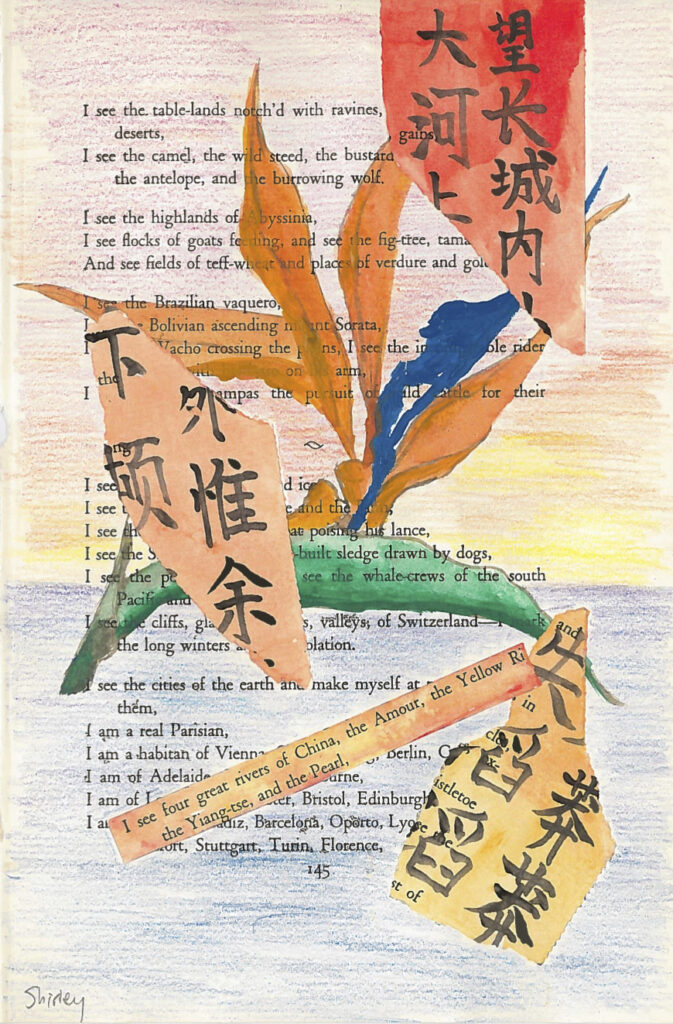 望长城内
大河上
I see the table-lands notch'd with ravines,
deserts,
gains,
I see the camel, the wild steed, the bustard
the antelope, and the burrowing wolf.
I see the highlands of Abyssinia,
I see flocks of goats feeding, and see the fig-tree,
And see fields of teff-wheat and places of verdure and
I see the Brazilian vaquero,
Bolivian ascending mount Sorata,
Wacho crossing the plains, I see the rider
on his arm,
the
I pampas the pursuit of wild cattle for their
外惟余
下顿
I see
I see and the
I see poising his lance,
I see the -built sledge drawn by dogs,
I see the see the whale-crews of the south
Pacific and
I see the cliffs, valleys, of Switzerland—I mark
the long winters
I see the cities of the earth and make myself at
them,
I am a real Parisian,
I am a habitan of Vienna, Berlin,
I am of Adelaide
I am of Bristol, Edinburgh
I am Cadiz, Barcelona, Oporto,
Stuttgart, Turin, Florence,
145
I see four great rivers of China, the Amour, the Yellow
the Yiang-tse, and the Pearl,
and
in
莽莽
失滔滔
st of
Shirley